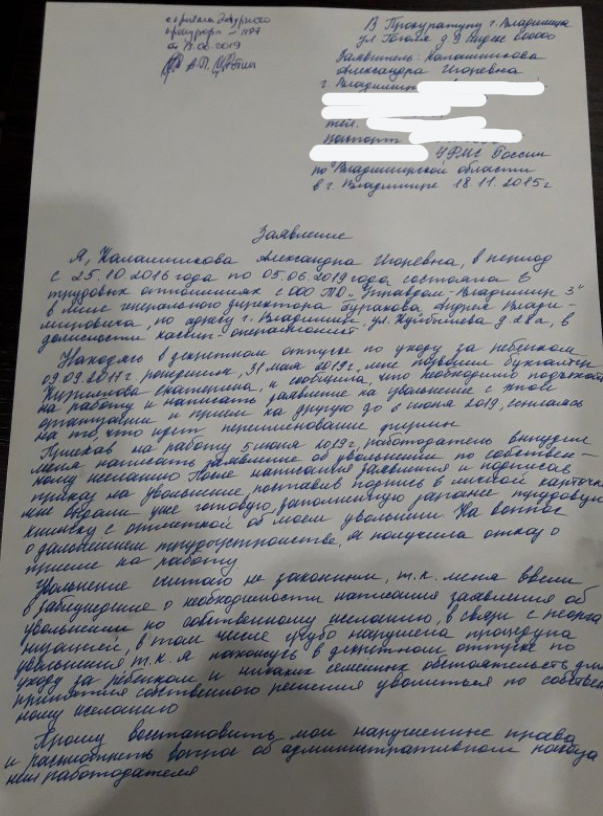 с приёма дежурного
прокурора
2019
А.П.
В Прокуратуру г. Владимира
ул Гоголя д 9 Индекс 600000
Заявитель: Калашникова
Александра Игоревна
г. Владимир
тел.
паспорт
УФМС России
по Владимирской области
в г. Владимире 18.11.2015г
Заявление
Я, Калашникова Александра Игоревна, в период
с 25.10 2016 года по 05.06 2019 года, состояла в
трудовых отношениях с ООО ТО „Управдом-Владимир 3"
в лице генерального директора Андрея Влади-
мировича, по адресу г. Владимир, ул. Куйбышева д 28а, в
должности кассир-операционист
Находясь в декретном отпуске по уходу за ребенком
09.09.2017г. рождения, 31 мая 2019г., мне позвонил бухгалтер
Екатерина, и сообщила, что необходимо подъехать
на работу и написать заявление на увольнение с этой
организации и прием на другую до 6 июня 2019, ссылаясь
на то, что идет переименование фирмы
Приехав на работу 5 июня 2019г, работодатель вынудил
меня написать заявление об увольнении по собствен-
ному желанию После написания заявления и подписав
приказ на увольнение, поставив подпись в личной карточке
мне выдали уже готовую, заполненную заранее трудовую
книжку с отметкой об моем увольнении. На вопрос
о дальнейшем трудоустройстве, я получила отказ о
приеме на работу
Увольнение считаю не законным, т.к. меня ввели
в заблуждение о необходимости написания заявления об
увольнении по собственному желанию, в связи с реорга
низацией, в том числе грубо нарушена процедура
увольнения т.к. я нахожусь в декретном отпуске по
уходу за ребенком и никаких семейных обстоятельств для
принятия собственного решения уволиться по собствен
ному желанию
Прошу восстановить мои нарушенные права
и рассмотреть вопрос об административном наказа
нии работодателя